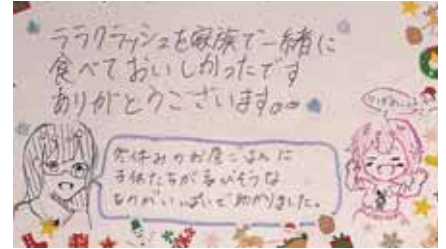 ララクラッシュを家族で一緒に
食べておいしかったです
ありがとうございます。
冬休みのお昼ごはんに
子供たちが喜びそうな
ものがいっぱいで助かりました。